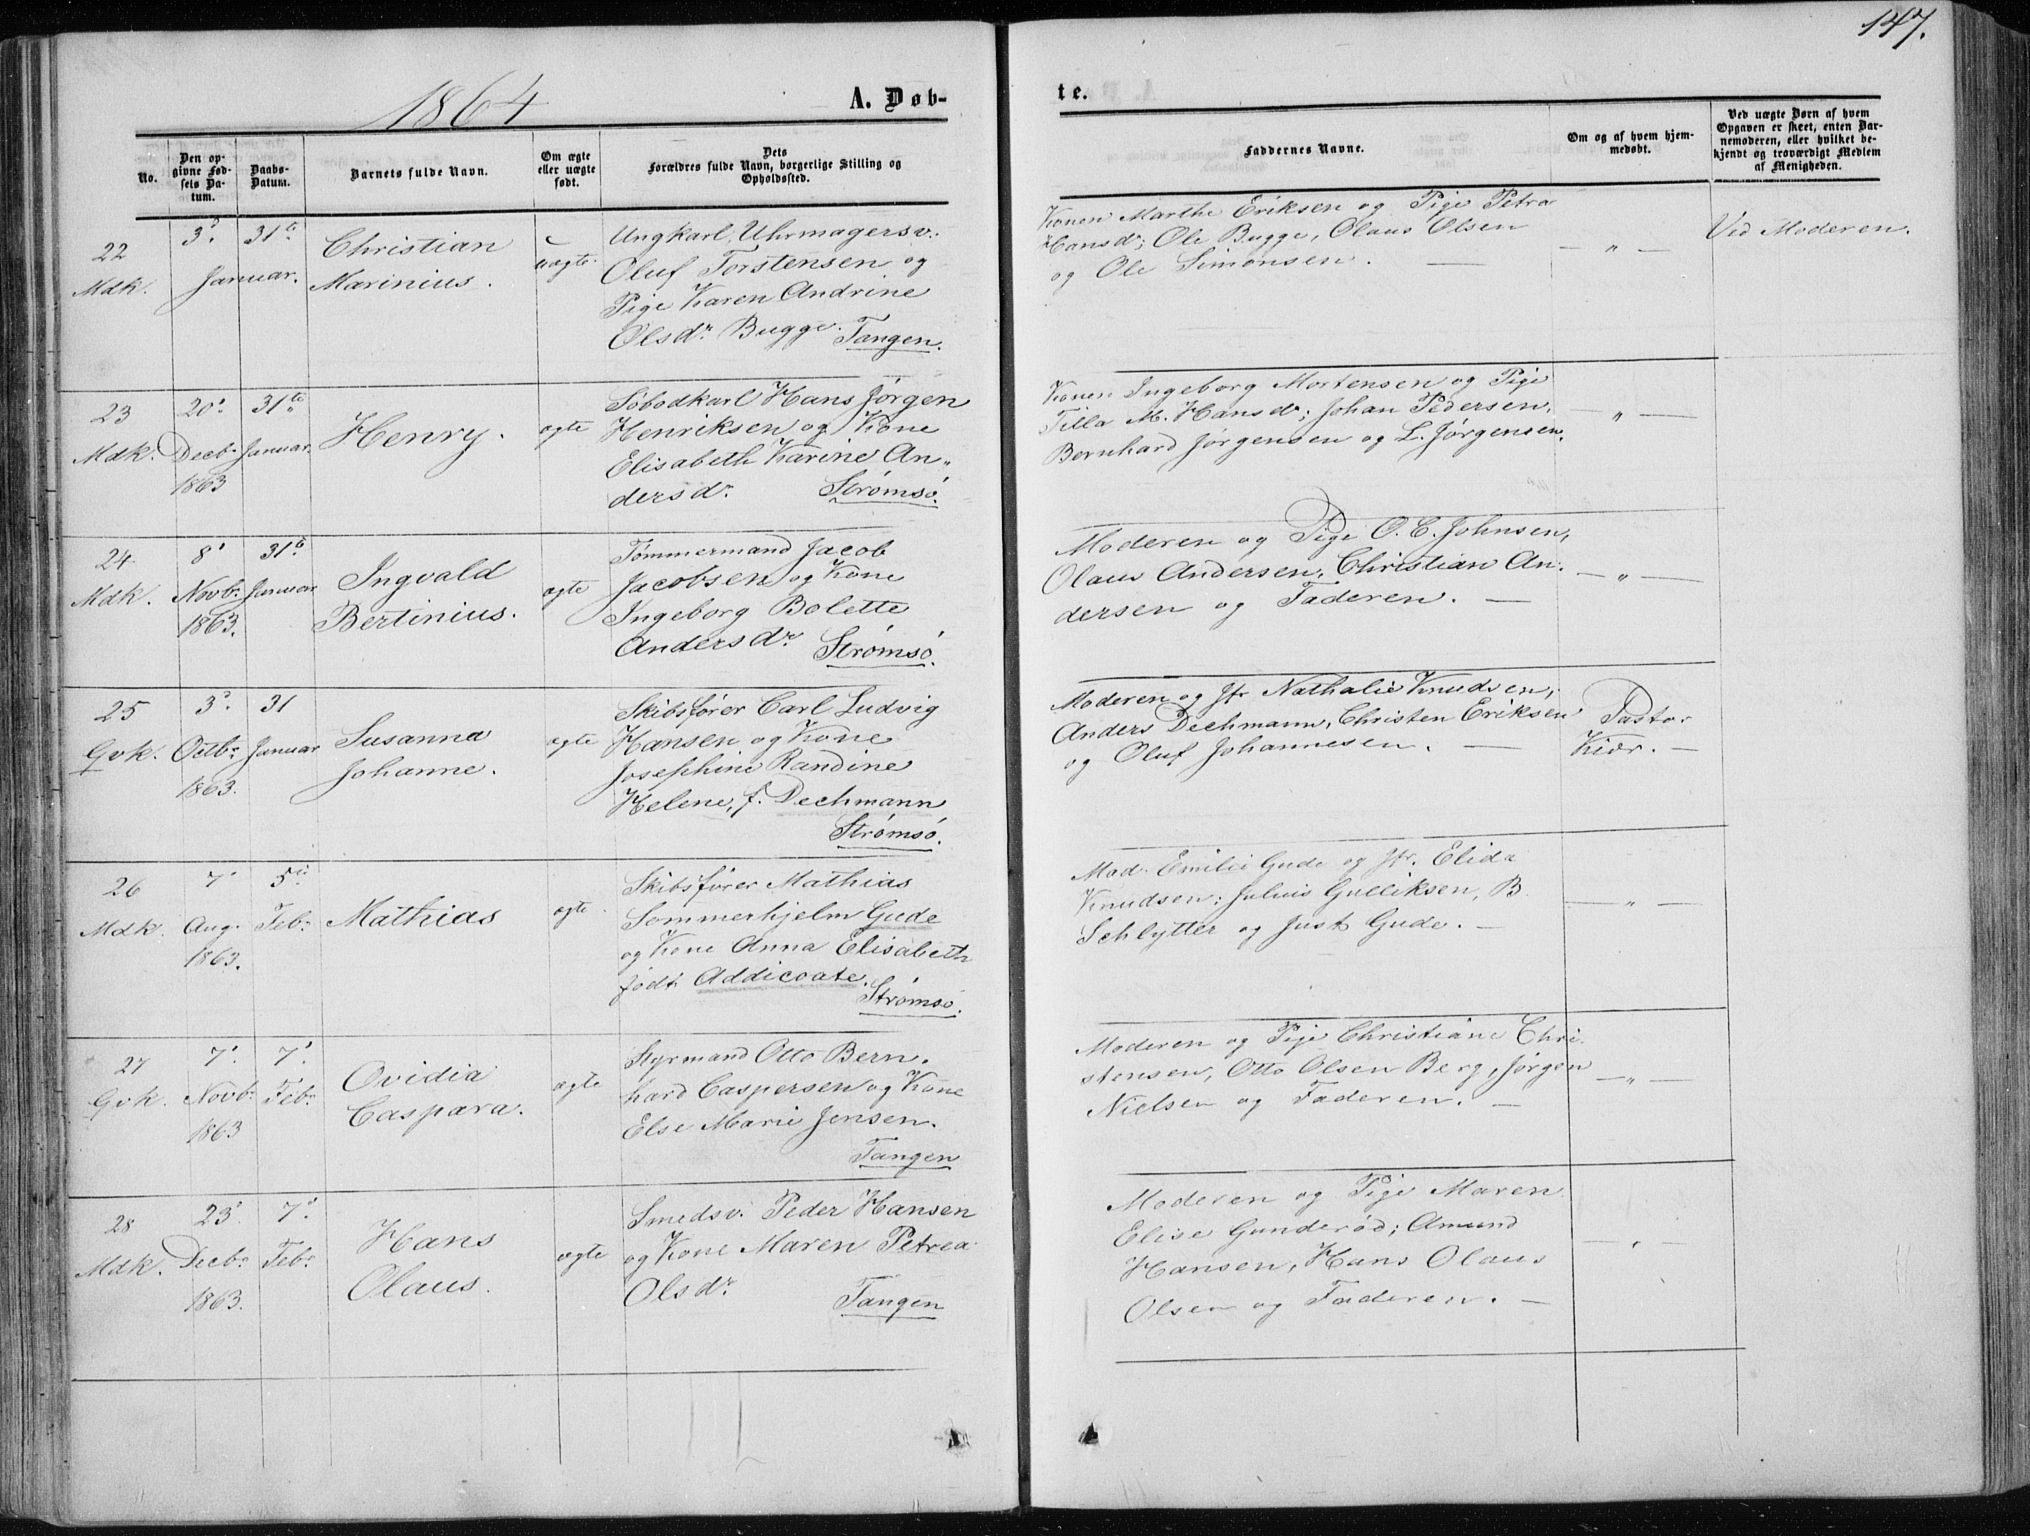 147.
1864
A. Døb-
te.
No.
Den op-
givne Fød-
sels Da-
tum.
Daabs-
Datum.
Barnets fulde Navn.
Om ægte
eller uægte
født.
Dets
Forældres fulde Navn, borgerlige Stilling og
Opholdssted.
Faddernes Navne.
Om og af hvem hjem-
medøbt.
Ved uægte Børn af hvem
Opgaven er skeet, enten Bar-
nemoderen, eller hvilket be-
kjendt og troværdigt Medlem
af Menigheden.
22
Mdk.
3d.
31te
Januar.
Christian
Marinius.
uægte.
Ungkarl, Uhrmagersv.
Oluf Torstensen og
Pige Karen Andrine
Olsdr. Bugge. Tangen.
Konen Marthe Eriksen og Pige Petra
Hansdr; Ole Bugge, Olaus Olsen
og Ole Simonsen. —
— „ —
Ved Moderen.
23
Mdk.
20de
Decbr.
1863
31te
Januar.
Henry.
ægte
Løbodkarl Hans Jørgen
Henriksen og Kone
Elisabeth Karine An-
dersdr. Strømsø.
Konen Ingeborg Mortensen og Pige
Tilla M. Hansdr; Johan Pedersen,
Bernhard Jørgensen og L. Jørgensen.
— „ —
24
Mdk.
8d
Novbr.
1863.
31te
Januar
Ingvald
Bertinius.
ægte
Tømmermand Jacob
Jacobsen og Kone
Ingeborg Bolette
Andersdr. Strømsø.
Moderen og Pige O. C. Johnsen,
Olaus Andersen, Christian An-
dersen og Faderen. —
— „ —
25
Gvk.
3d.
Octbr.
1863.
31
Januar
Susanna
Johanne.
ægte
Skibsfører Carl Ludvig
Hansen og Kone
Josephine Randine
Helene, f. Dechmann
Strømsø.
Moderen og Jfr Nathalie Knudsen,
Anders Dechmann, Christen Eriksen
og Oluf Johannesen. —
Pastor
Kiær. —
26
Mdk.
7d
Aug.
1863.
5te
Febr.
Mathias
ægte.
Skibsfører Mathias
Sommerhjelm Gude
og Kone Anna Elisabeth
født Addicoate.
Strømsø.
Mad. Emilie Gude og Jfr. Elida
Knudsen; Julius Gulliksen, B.
Schlytter og Just Gude. —
— „ —
27
Gvk.
7d.
Novbr.
1863
7d
Febr.
Ovidia
Caspara.
ægte
Styrmand Otto Bern-
hard Caspersen og Kone
Else Marie Jensen.
Tangen
Moderen og Pige Christiane Chri-
stensen, Otto Olsen Berg, Jørgen
Nielsen og Faderen. —
— „ —
28
Mdk.
23d.
Decbr.
1863.
7d.
Febr.
Hans
Olaus.
ægte
Smedsv. Peder Hansen
og Kone Maren Petrea
Olsdr. Tangen
Moderen og Pige Maren
Elise Gunderød; Amund
Hansen, Hans Olaus
Olsen og Faderen. —
— „ —